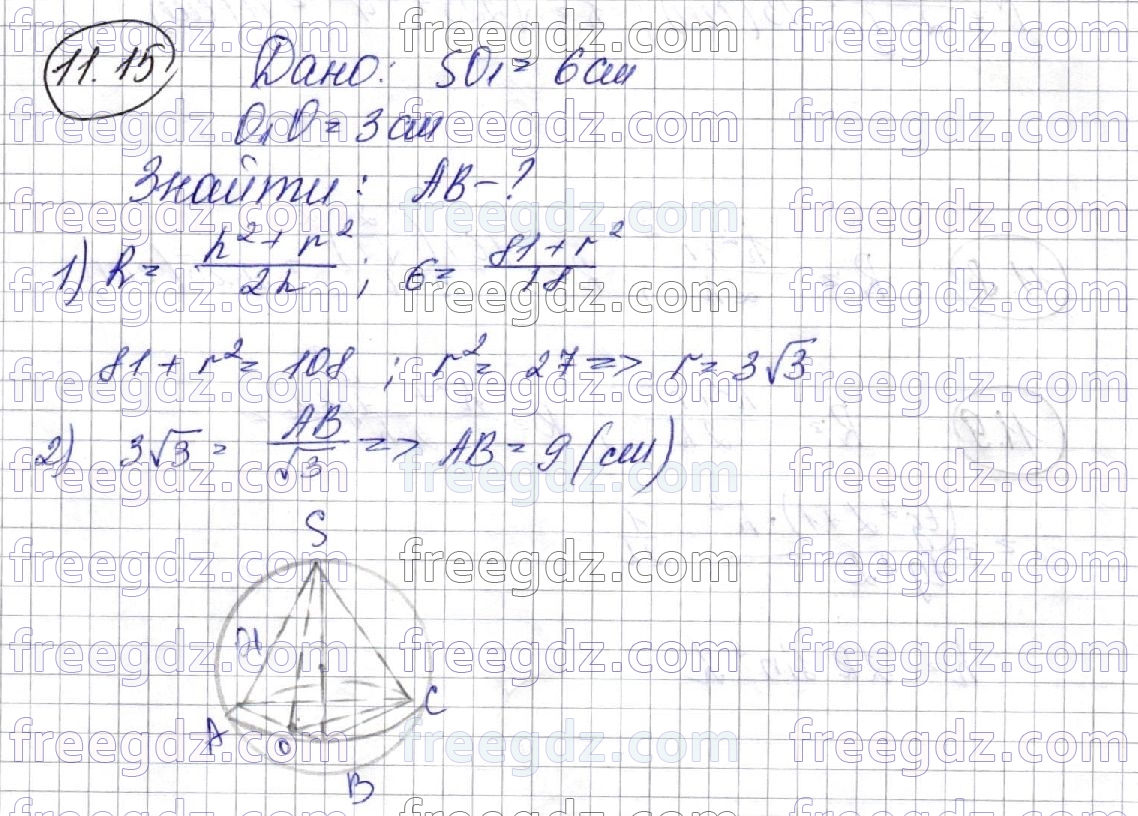 11.15 Дано: SO₁ = 6см
O₁O = 3см
Знайти: AB - ?
1) R = (h² + r²)/(2h) ; 6 = (81 + r²)/18
81 + r² = 108 ; r² = 27 => r = 3√3
2) 3√3 = AB/√3 => AB = 9 (см)
S
O1
A
C
O
B
freegdz.com